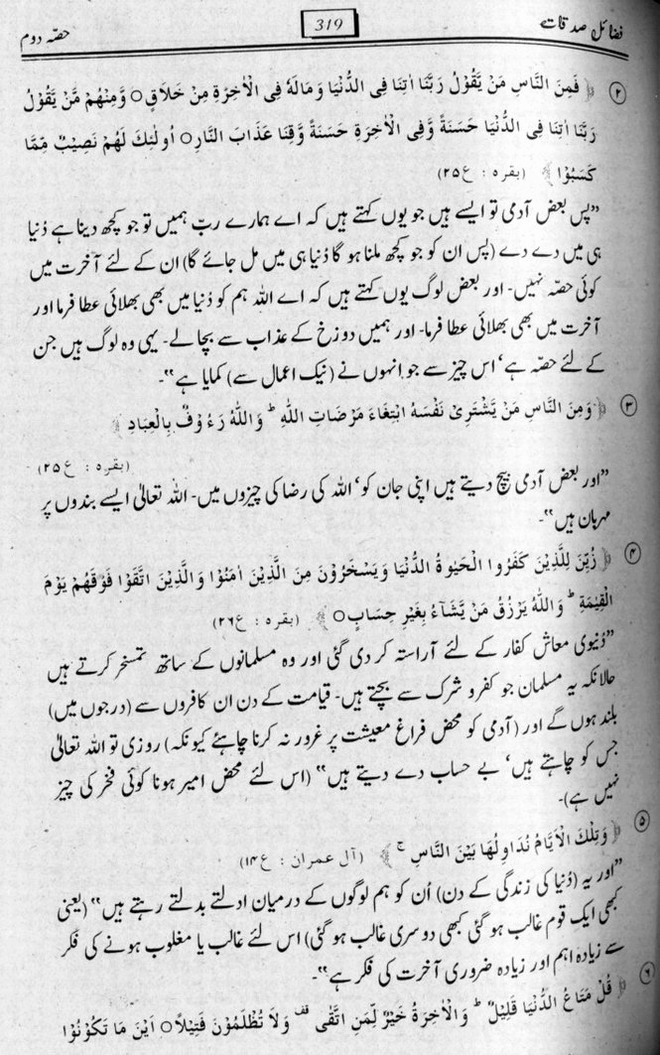 فضائل صدقات 319 حصّہ دوم
۲ ﴿ فَمِنَ النَّاسِ مَنْ يَّقُوْلُ رَبَّنَا اٰتِنَا فِى الدُّنْيَا وَمَالَهٗ فِى الْاٰخِرَةِ مِنْ خَلَاقٍ ○ وَمِنْهُمْ مَّنْ يَّقُوْلُ
رَبَّنَا اٰتِنَا فِى الدُّنْيَا حَسَنَةً وَّفِى الْاٰخِرَةِ حَسَنَةً وَّقِنَا عَذَابَ النَّارِ ○ اُولٰٓئِكَ لَهُمْ نَصِيْبٌ مِّمَّا
كَسَبُوْا ﴾ (بقرہ : ع۲۵)
”پس بعض آدمی تو ایسے ہیں جو یوں کہتے ہیں کہ اے ہمارے ربّ ہمیں تو جو کچھ دینا ہے دُنیا
ہی میں دے دے (پس ان کو جو کچھ ملنا ہو گا دُنیا ہی میں مل جائے گا) ان کے لئے آخرت میں
کوئی حصّہ نہیں۔ اور بعض لوگ یوں کہتے ہیں کہ اے اللہ ہم کو دُنیا میں بھی بھلائی عطا فرما اور
آخرت میں بھی بھلائی عطا فرما۔ اور ہمیں دوزخ کے عذاب سے بچا لے۔ یہی وہ لوگ ہیں جن
کے لئے حصّہ ہے‘ اس چیز سے جو انہوں نے (نیک اعمال سے) کمایا ہے“۔
۳ ﴿ وَمِنَ النَّاسِ مَنْ يَّشْتَرِىْ نَفْسَهُ ابْتِغَاءَ مَرْضَاتِ اللّٰهِ ؕ وَاللّٰهُ رَءُوْفٌ بِالْعِبَادِ ﴾
(بقرہ : ع۲۵)
”اور بعض آدمی بیچ دیتے ہیں اپنی جان کو‘ اللہ کی رضا کی چیزوں میں۔ اللہ تعالیٰ ایسے بندوں پر
مہربان ہیں“۔
۴ ﴿ زُيِّنَ لِلَّذِيْنَ كَفَرُوا الْحَيٰوةُ الدُّنْيَا وَيَسْخَرُوْنَ مِنَ الَّذِيْنَ اٰمَنُوْا وَالَّذِيْنَ اتَّقَوْا فَوْقَهُمْ يَوْمَ
الْقِيٰمَةِ ؕ وَاللّٰهُ يَرْزُقُ مَنْ يَّشَآءُ بِغَيْرِ حِسَابٍ ○ ﴾ (بقرہ : ع۲۶)
”دُنیوی معاش کفار کے لئے آراستہ کر دی گئی اور وہ مسلمانوں کے ساتھ تمسخر کرتے ہیں
حالانکہ یہ مسلمان جو کفر و شرک سے بچتے ہیں۔ قیامت کے دن ان کافروں سے (درجوں میں)
بلند ہوں گے اور (آدمی کو محض فراغ معیشت پر غرور نہ کرنا چاہئے کیونکہ) روزی تو اللہ تعالیٰ
جس کو چاہتے ہیں‘ بے حساب دے دیتے ہیں“ (اس لئے محض امیر ہونا کوئی فخر کی چیز
نہیں ہے)۔
۵ ﴿ وَتِلْكَ الْاَيَّامُ نُدَاوِلُهَا بَيْنَ النَّاسِ ۚ ﴾ (آل عمران : ع۱۴)
”اور یہ (دُنیا کی زندگی کے دن) اُن کو ہم لوگوں کے درمیان ادلتے بدلتے رہتے ہیں“ (یعنی
کبھی ایک قوم غالب ہو گئی کبھی دوسری غالب ہو گئی) اس لئے غالب یا مغلوب ہونے کی فکر
سے زیادہ اہم اور زیادہ ضروری آخرت کی فکر ہے“۔
۶ ﴿ قُلْ مَتَاعُ الدُّنْيَا قَلِيْلٌ ؕ وَالْاٰخِرَةُ خَيْرٌ لِّمَنِ اتَّقٰى قف وَلَا تُظْلَمُوْنَ فَتِيْلًا ○ اَيْنَ مَا تَكُوْنُوْا